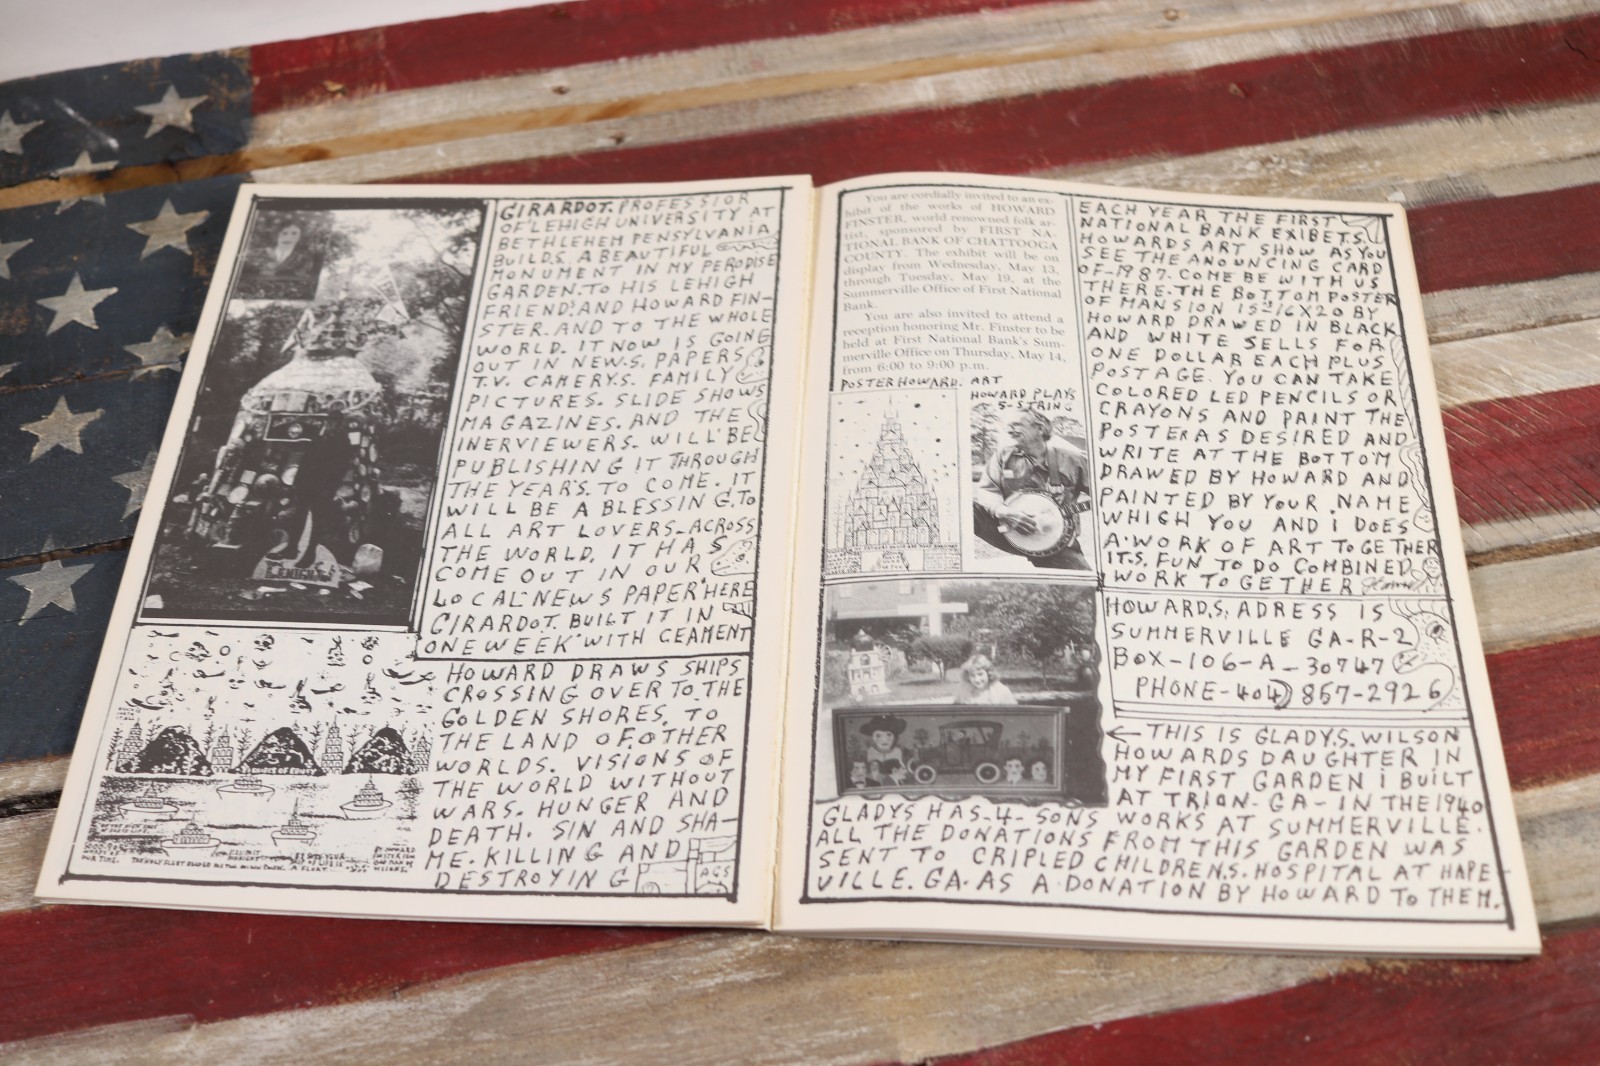 GIRARDOT. PROFESSIOR
OF LEHIGH UNIVERSITY AT
BETHLEHEM PENSYLVANIA
BUILDS. A BEAUTIFUL
MONUMENT IN MY PERODISE
GARDEN. TO HIS LEHIGH
FRIEND. AND HOWARD FIN-
STER. AND TO THE WHOLE
WORLD. IT NOW IS GOING
OUT IN NEWS. PAPERS
T.V. CAMERYS. FAMILY
PICTURES. SLIDE SHOWS
MAGAZINES. AND THE
INERVIEWERS. WILL BE
PUBLISHING IT THROUGH
THE YEARS. TO COME. IT
WILL BE A BLESSING. TO
ALL ART LOVERS. ACROSS
THE WORLD. IT HAS
COME OUT IN OUR
LOCAL NEWS PAPER HERE
GIRARDOT. BUILT IT IN
ONE WEEK WITH CEAMENT
LEHIGH
HOWARD DRAWS SHIPS
CROSSING OVER TO THE
GOLDEN SHORES. TO
THE LAND OF. OTHER
WORLDS. VISIONS OF
THE WORLD WITHOUT
WARS. HUNGER AND
DEATH. SIN AND SHA-
ME. KILLING AND
DESTROYING
AGS
You are cordially invited to an ex-
hibit of the works of HOWARD
FINSTER, world renowned folk ar-
tist, sponsored by FIRST NA-
TIONAL BANK OF CHATTOOGA
COUNTY. The exhibit will be on
display from Wednesday, May 13,
through Tuesday, May 19, at the
Summerville Office of First National
Bank.
You are also invited to attend a
reception honoring Mr. Finster to be
held at First National Bank's Sum-
merville Office on Thursday, May 14,
from 6:00 to 9:00 p.m.
POSTER HOWARD. ART
HOWARD PLAYS
5-STRING
EACH YEAR THE FIRST
NATIONAL BANK EXIBETS.
HOWARDS ART SHOW AS YOU
SEE THE ANOUNCING CARD
OF-1987. COME BE WITH US
THERE. THE BOTTOM POSTER
OF MANSION 15 16X20 BY
HOWARD DRAWED IN BLACK
AND WHITE SELLS FOR
ONE DOLLAR EACH PLUS
POSTAGE. YOU CAN TAKE
COLORED LED PENCILS OR
CRAYONS AND PAINT THE
POSTER AS DESIRED AND
WRITE AT THE BOTTOM
DRAWED BY HOWARD AND
PAINTED BY YOUR NAME
WHICH YOU AND i DOES
A WORK OF ART TO GETHER
ITS. FUN TO DO COMBINED
WORK TO GETHER
HOWARDS. ADRESS IS
SUMMERVILLE GA-R-2
BOX-106-A-30747
PHONE-404) 857-2926
← THIS IS GLADYS. WILSON
HOWARDS DAUGHTER IN
MY FIRST GARDEN i BUILT
AT TRION-GA-IN THE 1940
GLADYS HAS-4-SONS WORKS AT SUMMERVILLE.
ALL THE DONATIONS FROM THIS GARDEN WAS
SENT TO CRIPLED CHILDRENS. HOSPITAL AT HAPE
VILLE. GA. AS A DONATION BY HOWARD TO THEM.